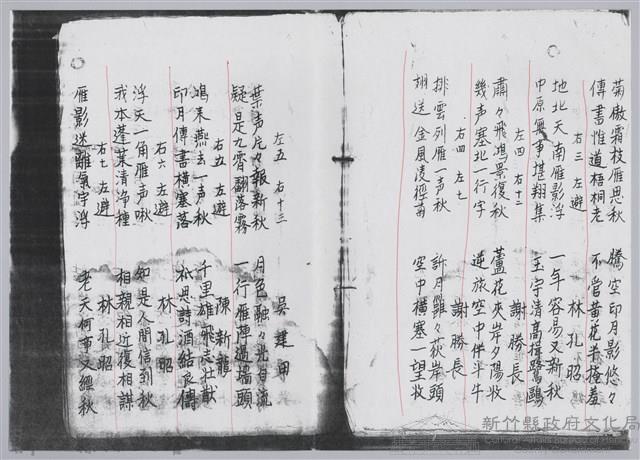 菊傲霜枝雁思秋 騰空印月影悠々
傳書惟道梧桐老 不當黃花半掩羞
右三 左避 林孔昭
地北天南雁影浮 一年容易又新秋
中原無事堪翔集 玉宇清高掛鷺鷗
左四 右十二 謝勝長
肅々飛鴻景復秋 蘆花夾岸夕陽收
幾声塞北一行字 逆旅空中伴斗牛
右四 左七 謝勝長
排雲列雁一声秋 許月蘿々荻岸頭
翊送金風淩徑 空中橫塞一望收
左五 右十三 吳建田
葉声片々報新秋 月色融々光自流
疑是九霄翻落霧 一行雁陣過牆頭
右五 左避 陳新龍
鳴來燕去一声秋 千里雄飛志壯猷
印月傳書橫塞落 私思詩酒結良儔
右六 左避 林孔昭
浮天一角雁声啾 知是人間信到秋
我本蓬萊清淨種 相親相近復相謀
右七 左避 林孔昭
雁影迷離氣宇浮 老天何事又經秋
新竹縣政府文化局
Cultural Affairs Bureau of Hsinchu County Government